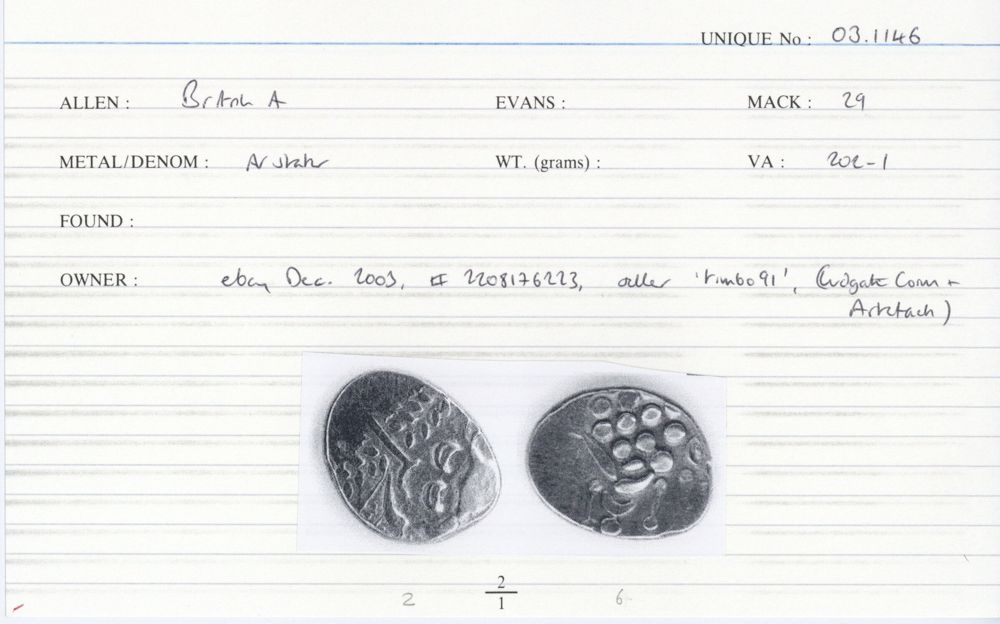 UNIQUE No : 03.1146
ALLEN : British A EVANS : MACK : 29
METAL/DENOM : AV stater WT. (grams) : VA : 202-1
FOUND :
OWNER : ebay Dec. 2003, # 2208176223, seller 'timbo91', (Ludgate Coins +
2
2 1 6